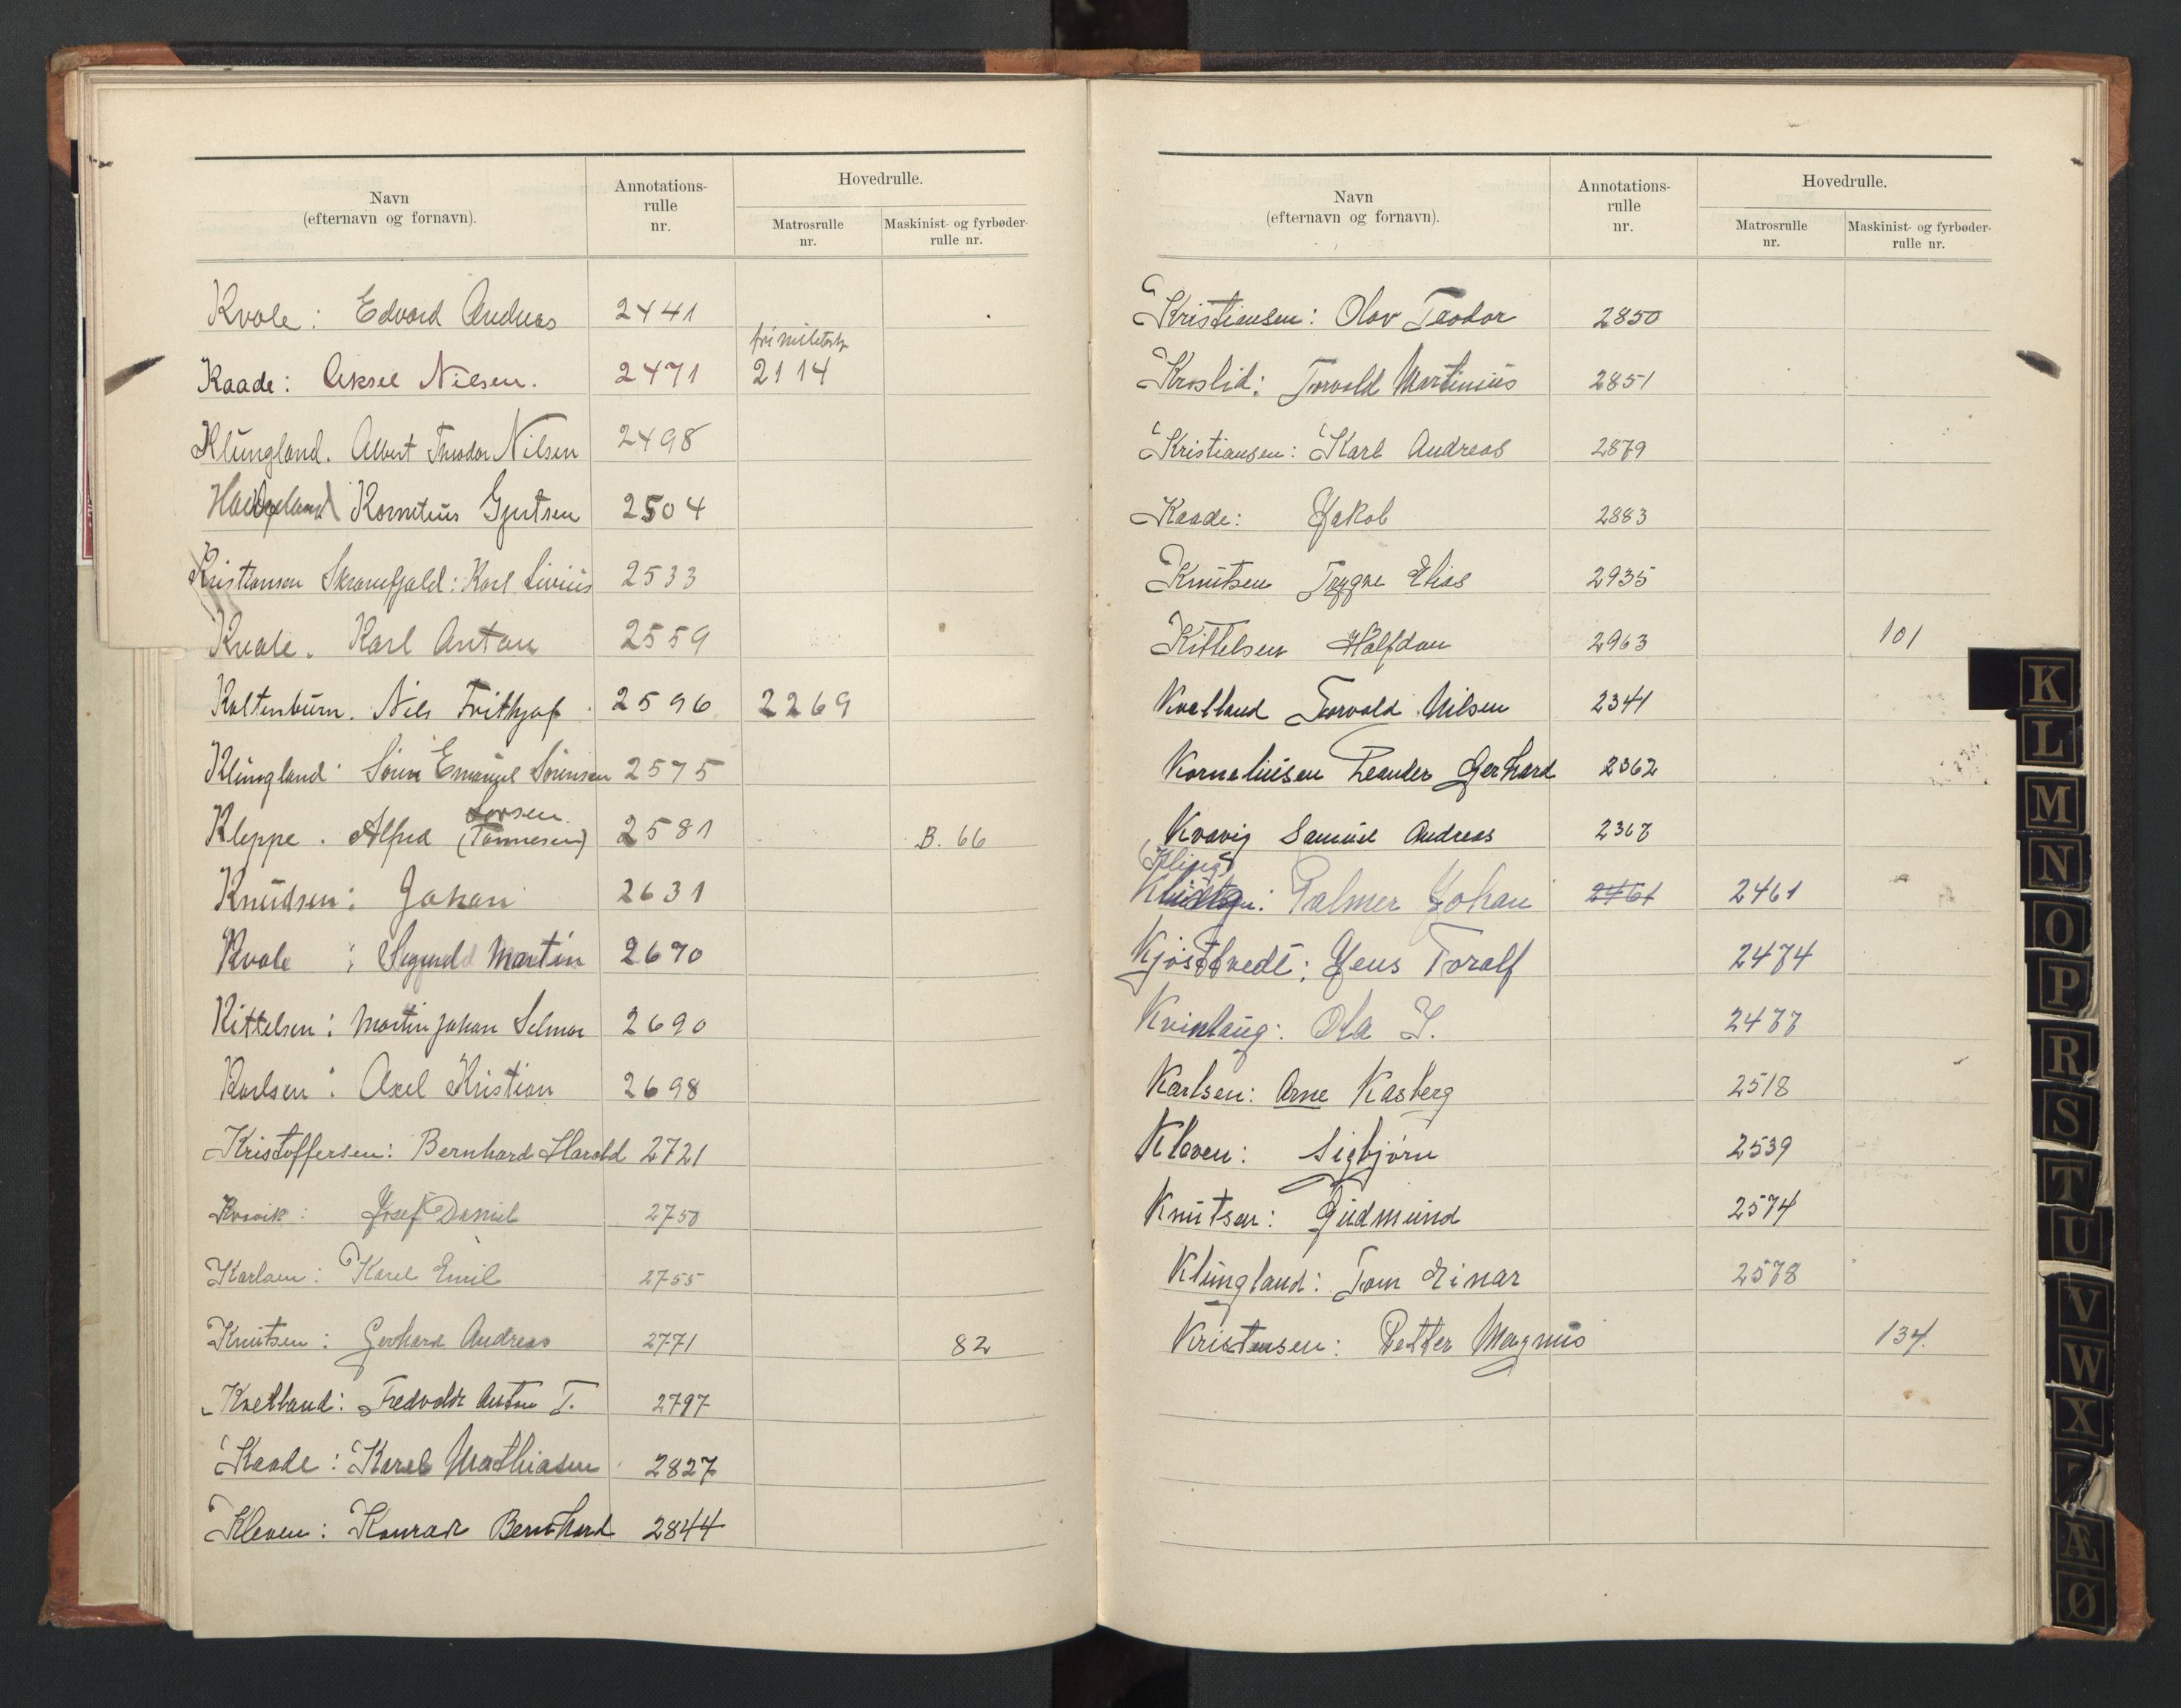 Navn
(efternavn og fornavn).
Annotations-
rulle
nr.
Hovedrulle.
Matrosrulle
nr.
Maskinist- og fyrbøder-
rulle nr.
Kvale: Edvard Andreas 2441
frimilitærh
Kaade: Aksel Nilsen. 2471 2114
Klungland. Albert Theodor Nilsen 2498
Kornelius Gjertsen 2504
Kristiansen Skranefjeld: Karl Livius 2533
Kvale. Karl Anton 2559
Kaltenburn. Nils Frithjof 2596 2269
Klungland Søren Emanuel Sørensen 2575
Larsen.
Kleppe. Alfred (Tønnesen) 2581 B. 66
Knudsen: Johan 2631
Kvale: Sigurd Martin 2670
Kittelsen: Martin Johan Selmar 2690
Karlsen: Axel Kristian 2698
Kristoffersen: Bernhard Harald 2721
Kvavik: Josef Daniel 2750
Karlsen: Karel Emil 2755
Knutsen: Gerhard Andreas 2771 82
Kvelland: Fredvold Anton T. 2797
Kaade: Karel Mathiasen 2827
Kleven: Konrad Bernhard 2844
Navn
(efternavn og fornavn).
Annotations-
rulle
nr.
Hovedrulle.
Matrosrulle
nr.
Maskinist- og fyrbøder-
rulle nr.
Kristiansen: Olav Teodor 2850
Kroslid: Torvald Martinius 2851
Kristiansen: Karl Andreas 2879
Kaade: Jakob 2883
Knutsen Trygve Elias 2935
Kittelsen Halfdan 2963 101
Kvelland Torvald Nilsen 2341
Korneliusen Leander Gerhard 2362
Kvavig Samuel Andreas 2367
Palmer Johan 2461 2461
Kjøstvedt: Jens Toralf 2474
Kvinlaug: Ola J. 2477
Karlsen: Arne Kasberg 2518
Kleven: Sigbjørn 2539
Knutsen: Gudmund 2574
Klungland: Tom Einar 2578
Kristensen: Petter Magnus 134.
K
L
M
N
O
P
R
S
T
U
V
W
X
Æ
Ø